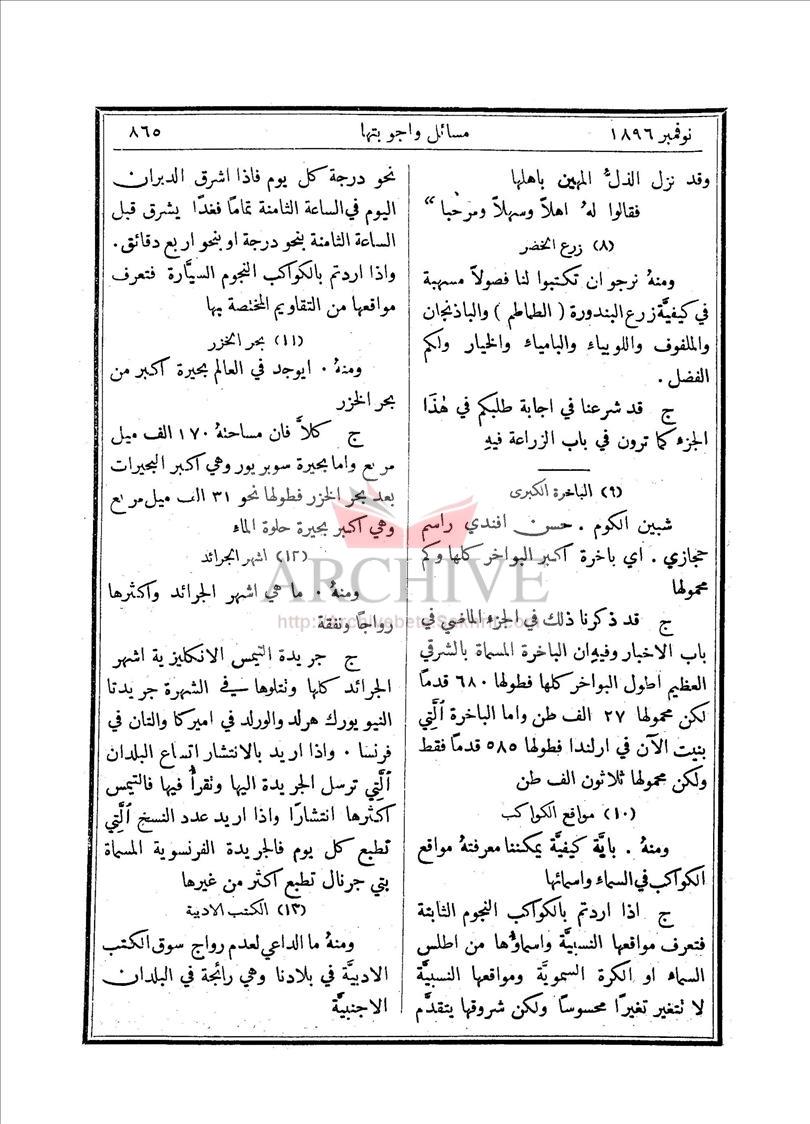 نوفمبر ١٨٩٦
مسائل واجوبتها
٨٦٥
وقد نزل الذلُّ المهين باهلها
فقالوا لهُ اهلاً وسهلاً ومرحبا “
(٨) زرع الخضر
ومنهُ نرجو ان تكتبوا لنا فصولاً مسهبة
في كيفيَّة زرع البندورة ( الطماطم ) والباذنجان
والملفوف واللوبياء والبامياء والخيار ولكم
الفضل .
ج قد شرعنا في اجابة طلبكم في هٰذا
الجزء كما ترون في باب الزراعة فيهِ
(٩) الباخرة الكبرى
شبين الكوم . حسن افندي راسم
حجازي . اي باخرة اكبر البواخر كلها وكم
محمولها
ج قد ذكرنا ذلك في الجزء الماضي في
باب الاخبار وفيهِ ان الباخرة المسماة بالشرقي
العظيم اطول البواخر كلها فطولها ٦٨٠ قدماً
لكن محمولها ٢٧ الف طن واما الباخرة الَّتي
بنيت الآن في ارلندا فطولها ٥٨٥ قدماً فقط
ولكن محمولها ثلاثون الف طن
(١٠) مواقع الكواكب
ومنهُ . باية كيفيَّة يمكننا معرفتهُ مواقع
الكواكب في السماء واسمائها
ج اذا اردتم بالكواكب النجوم الثابتة
فتعرف مواقعها النسبيَّة واسماؤُها من اطلس
السماء او الكرة السمويَّة ومواقعها النسبيَّة
لا تتغير تغيرًا محسوسًا ولكن شروقها يتقدَّم
نحو درجة كل يوم فاذا اشرق الدبران
اليوم في الساعة الثامنة تمامًا فغدًا يشرق قبل
الساعة الثامنة بنحو درجة او بنحو اربع دقائق .
واذا اردتم بالكواكب النجوم السيَّارة فتعرف
مواقعها من التقاويم المختصة بها
(١١) بحر الخزر
ومنهُ . ايوجد في العالم بحيرة اكبر من
بحر الخزر
ج كلاَّ فان مساحتهُ ١٧٠ الف ميل
مربع واما بحيرة سوبريور وهي اكبر البحيرات
بعد بحر الخزر فطولها نحو ٣١ الف ميل مربع
وهي اكبر بحيرة حلوة الماء
(١٢) اشهر الجرائد
ومنهُ . ما هي اشهر الجرائد واكثرها
رواجًا ونفقة
ج جريدة التيمس الانكليزية اشهر
الجرائد كلها ونتلوها في الشهرة جريدتا
النيو يورك هرلد والورلد في اميركا والتان في
فرنسا . واذا اريد بالانتشار اتساع البلدان
الَّتي ترسل الجريدة اليها وتقرأُ فيها فالتيمس
اكثرها انتشارًا واذا اريد عدد النسخ الَّتي
تطبع كل يوم فالجريدة الفرنسوية المسماة
بتي جرنال تطبع اكثر من غيرها
(١٣) الكتب الادبية
ومنهُ ما الداعي لعدم رواج سوق الكتب
الادبيَّة في بلادنا وهي رائجة في البلدان
الاجنبيَّة
ARCHIVE